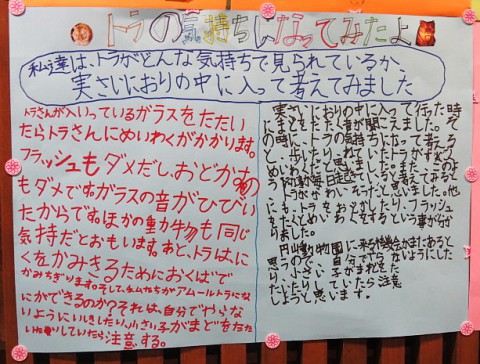 トラの気持ちになってみたよ
私達は、トラがどんな気持ちで見られているか、
実さいにおりの中に入って考えてみました
トラさんが入いっているガラスをたたい
たらトラさんにめいわくがかかります。
フラッシュもダメだし、おどかすの
もダメですガラスの音がひびい
たからです。ほかの動物も同じ
気持だとおもいます。あと、トラは、に
くをかみきるためにおくばで
かみちぎります。そして、私たちがアムールトラにな
にかできるのか?それは、自分でやらな
いようにいしきしたい。小さい子がまどをたた
いたりしていたら注意する。
実さいにおりの中に入って行った時
にまどをたたく音が聞こえました。そ
の時に、トラの気持ちになって考える
と
めいわくだと思いました。またこのよ
うな行動が毎日
トラがかわいそうだと思いました。他
にも、トラをおどかしたり、フラッシュ
をたくとめいわくをするという事が分か
りました。
円山動物園に来る機会がまたあると
思うので、自分でやらないようにした
り、小さい子がまどをた
たいたりしていたら注意
しようと思います。